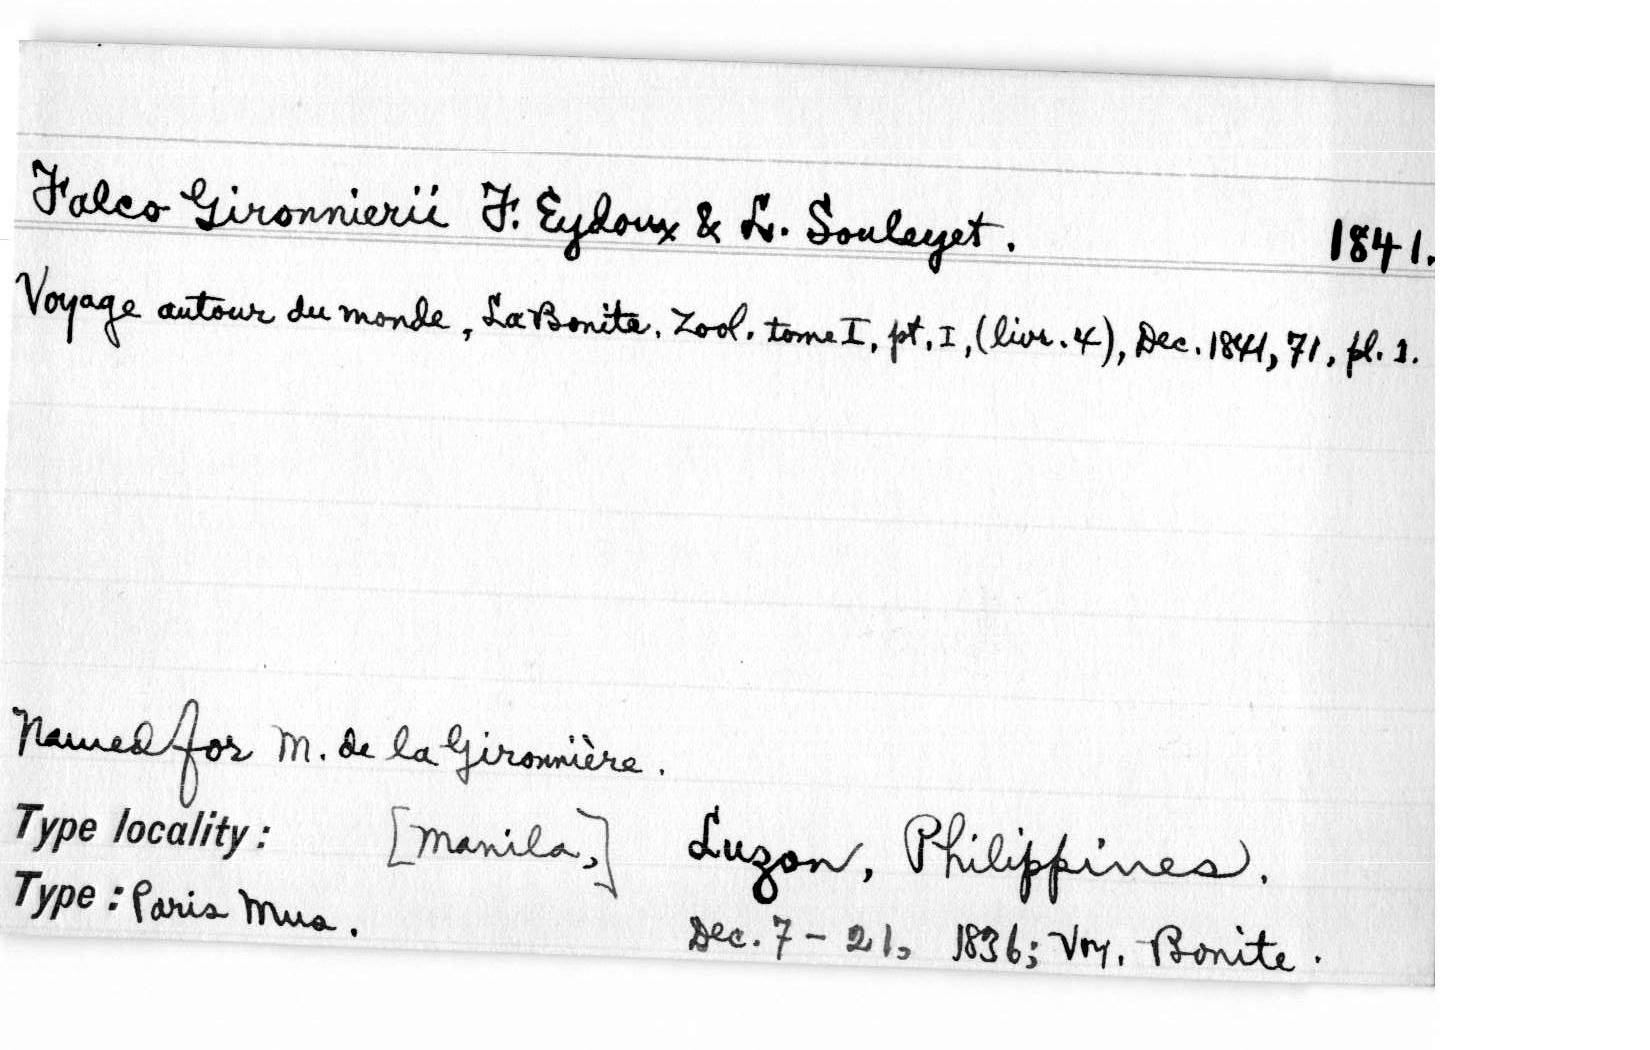 Falco Gironnierii F. Eydoux & L. Souleyet. 1841.
Voyage autour du monde, La Bonite. Zool. tome I, pt. I, (livr. 4), Dec. 1841, 71, pl. 1.
Named for M. de la Gironnière.
Type locality: [Manila,] Luzon, Philippines.
Type: Paris Mus.
Dec. 7-21, 1836; Voy. Bonite.